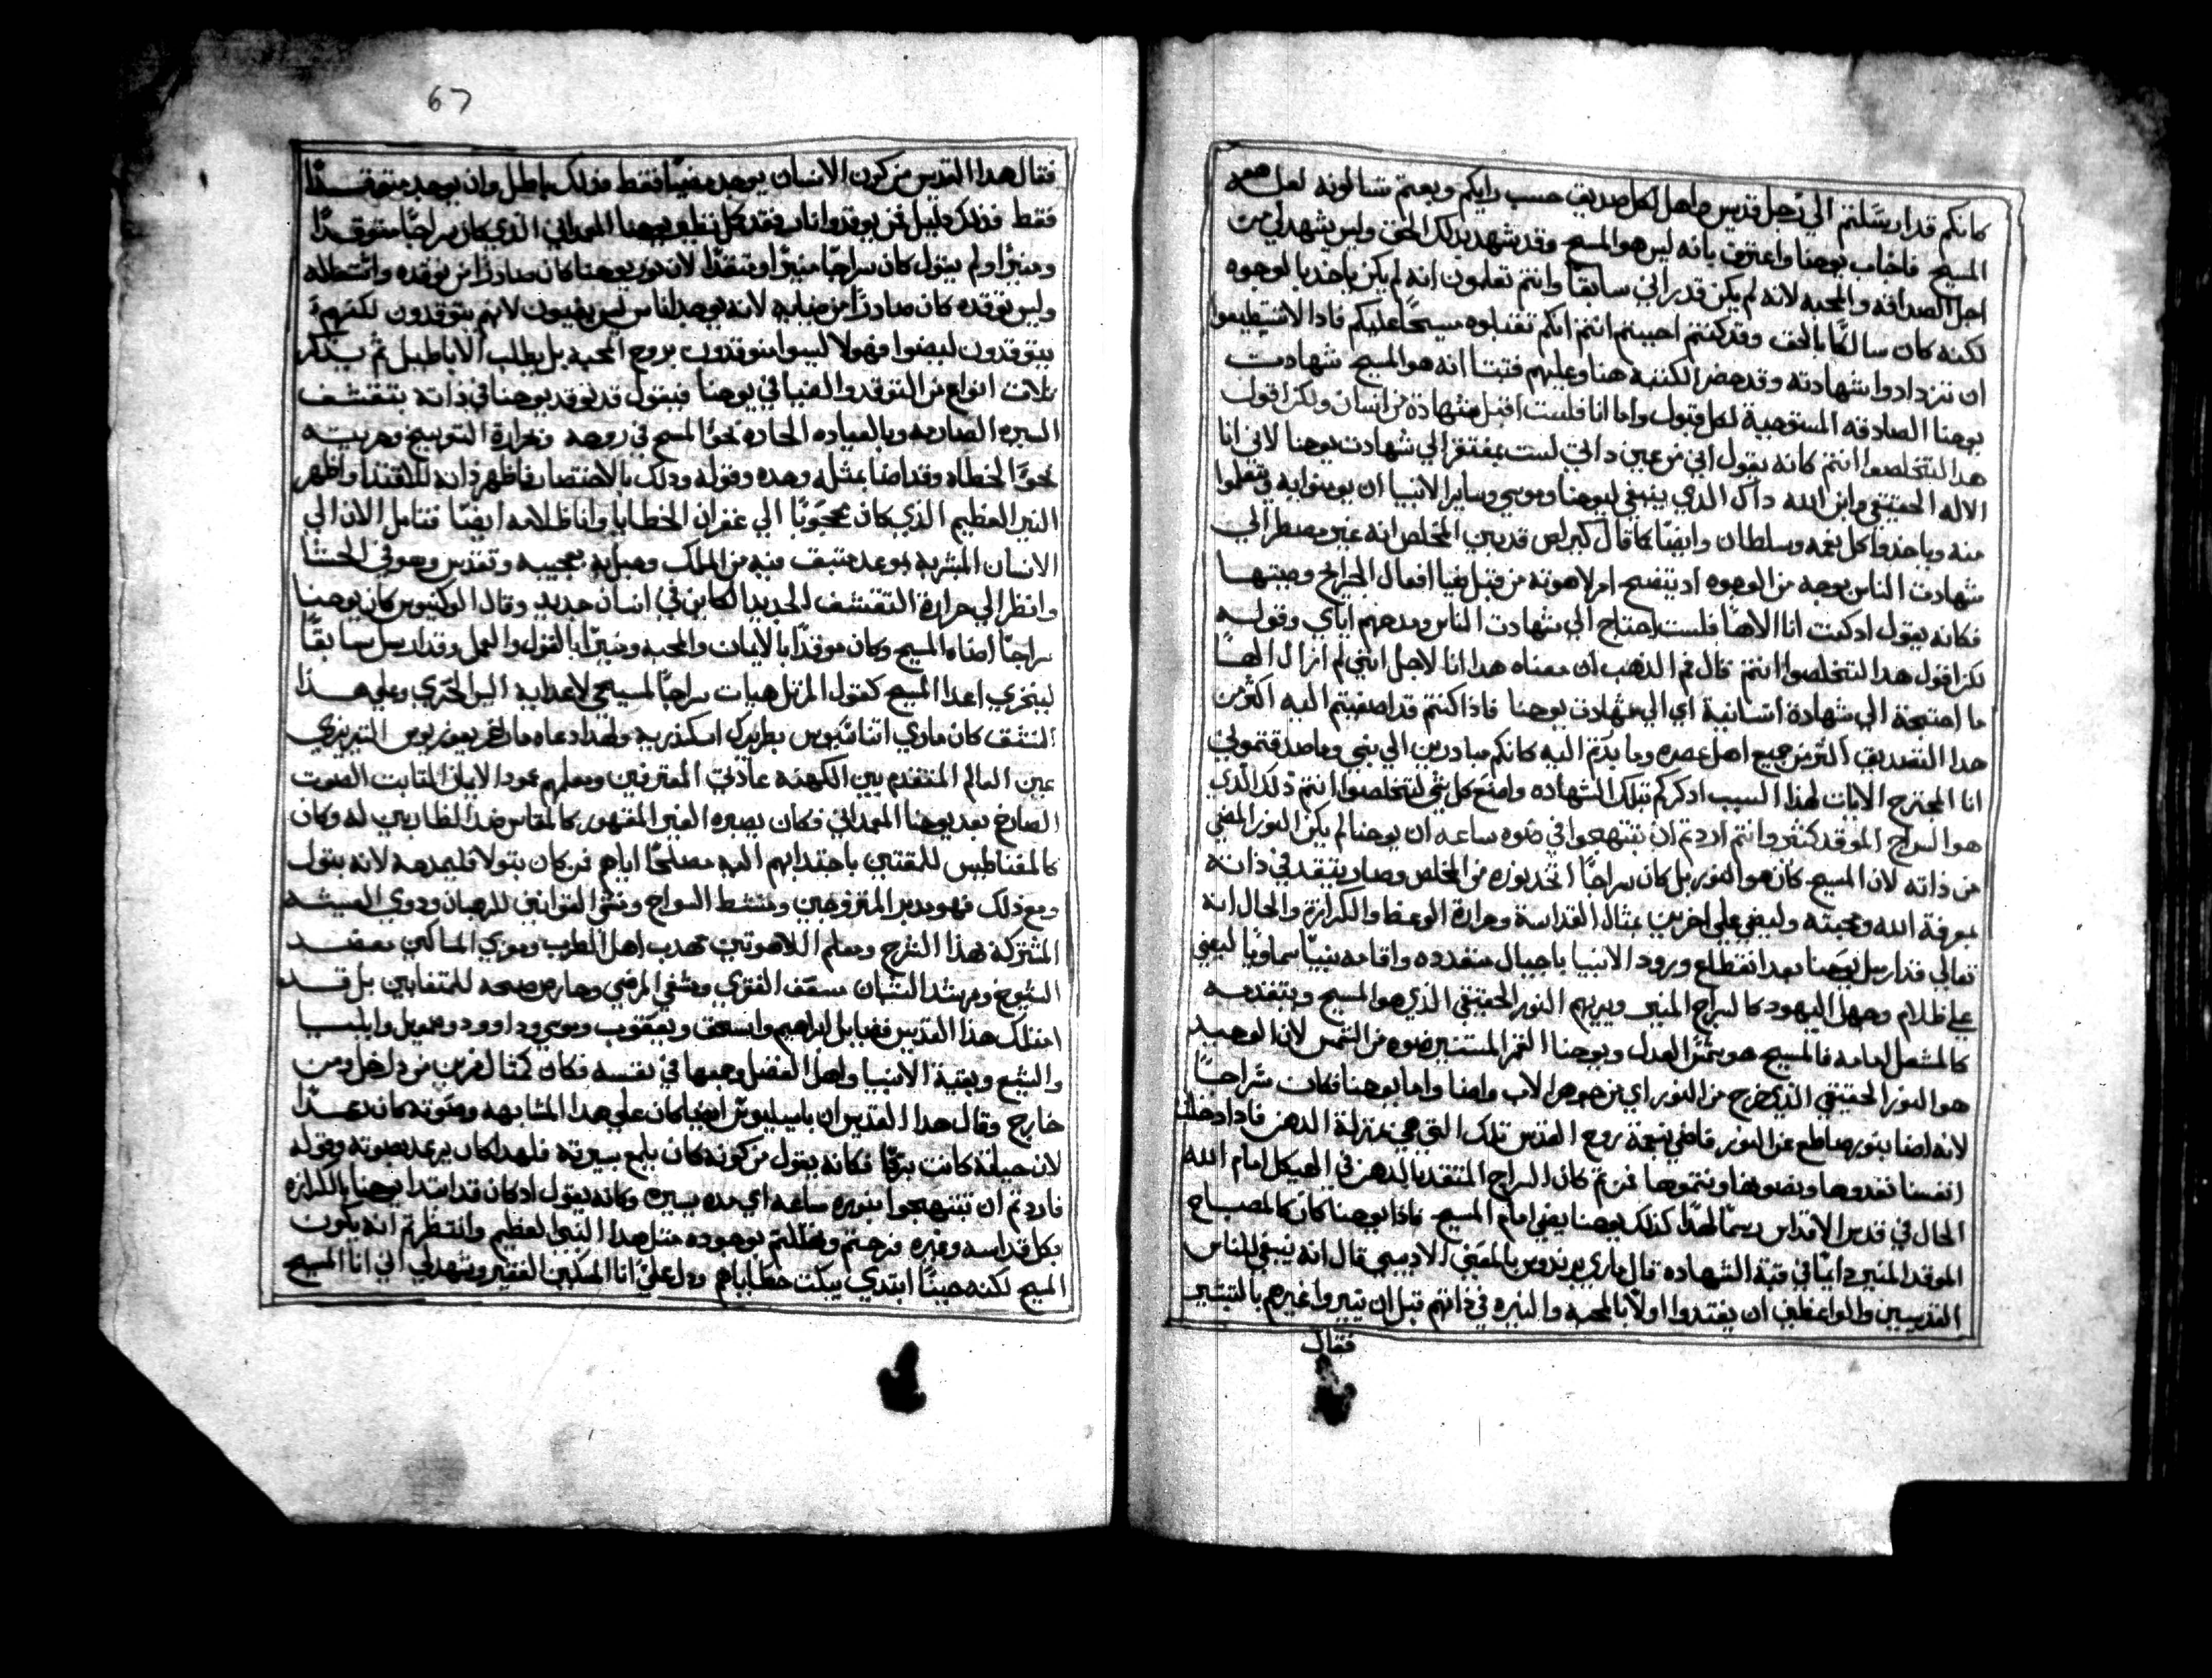 كانكم قد ارسلتم الي رجل قديس واهل لكل صديق حسب رايكم وبعتم تسالونه لعل هو
المسيح فاجاب يوحنا واعترف بانه ليس هو المسيح وقد شهد بدلك الحق وليس شهد لي من
اجل الصداقه والمحبه لانه لم يكن قد راني سابقا وانتم تعلمون انه لم يكن ياخد بالوجوه
لكنه كان سالكا بالحق وقد كنتم احببتم انتم انكم تقبلوه مسيحا عليكم فادا لا تستطيعوا
ان تزدادوا شهادته وقد حضر الكتبه هنا وعليهم فتبت انه هو المسيح شهادت
يوحنا الصادقه المستوجبة لكل قبول واما انا فلست اقبل شهادة من انسان ولكن اقول
هدا لتتخلصوا انتم كانه يقول اني من عين داتي لست بمفتقر الي شهادت يوحنا لاني انا
الاله الحقيقي وابن الله داك الذي ينبغي ليوحنا وموسي وساير الانبيا ان يومنوا به ويتعلموا
منه وياخدوا كل نعمه وسلطان وايضا كما قال كيرلص قد يبين المخلص انه غير مضطر الي
شهادت الناس بوجه من الوجوه اد يتضح امر لاهوته من قبل بقيا افعال الجرايح وهيبتها
فكانه يقول ادكنت انا الاها فلست احتاج الي شهادت الناس ومدحهم اياي وقوله
لكن اقول هدا لتتخلصوا انتم قال فم الدهب ان معناه هدا انا لاجل انني لم ازال الها
ما احتجة الي شهادة انسانية اي الي شهادت يوحنا فاذا كنتم قد اصغيتم اليه اكثر من
هدا التصديق اكثر من جميع اهل عصره وبادرتم اليه كانكم مبادرين الي نبي وما صدقتموني
انا المجترح الايات لهذا السبب ادكركم بتلك الشهاده واصنع كل شي لتتخلصوا انتم ذلك الذي
هو السراج الموقد كنتم وانتم اردتم ان تبتهجوا في ضوه ساعه ان يوحنا لم يكن النور المضي
من ذاته لان المسيح كان هو النور بل كان سراجا اتخد نوره من المخلص وصار يتقد في ذاته
بمعرفة الله ومحبته وليضي علي اخرين بمثال القداسة وحرارة الوعظ والكرازة والحال انه
تعالي قد ارسل يوحنا بعد انقطاع ورود الانبيا باجيال متعدده واقامه نبيا سماويا ليضي
علي ظلام وجهل اليهود كالسراج المنير ويريهم النور الحقيقي الذي هو المسيح ويتقدمه
كالمشعل امامه فالمسيح هو شمس العدل ويوحنا القمر المستنير ضوه من الشمس لان الوحيد
هو النور الحقيقي الذي خرج من النور اي من جوهر الاب واضا واما يوحنا فكان سراجا
لانه اضا بنور ساطع من النور فاضي بنعمة روح القدس تلك التي هي بمنزلة الدهن فاذا دخلت
انفسنا تغدوها وتضويها وتنموها فمن تم كان السراج المتقد بالدهن في الهيكل امام الله
الحال في قدس الاقداس رسما لهذا كدلك يوحنا يضي امام المسيح فاذا يوحنا كان كالمصباح
الموقد المنير دايما في قبة الشهاده قال ماري برنردوس بالمعني الادبي قال انه ينبغي للناس
القديسين والواعظين ان يقتدوا اولا بالمحبه والنيره في ذاتهم قبل ان ينيروا غيرهم بالتبشير
فقال
67
فقال هدا القديس من كون الانسان يوجد مضيا فقط فذلك باطل وان يوجد متوقدا
فقط فذلك قليل فمن يوقد وانار فقد كمل فنظير يوحنا المعمداني الذي كان سراجا متوقدا
ومنيرا ولم يقول كان سراجا منيرا ومتقدا لان نور يوحنا كان صادرا من توقده واشتعاله
وليس توقده كان صادرا من ضيايه لانه يوجد اناس ليس يضيون لانهم يتوقدون لكنهم
يتوقدون ليضوا فهولا ليسوا متوقدون بروح المحبه بل بطلب الاباطيل ثم يدكر
تلات انواع من التوقد والضيا في يوحنا فيقول قد توقد يوحنا في ذاته بتقشف
السيره الصارمه وبالعباده الحاره نحو المسيح في روحه وبحرارة التوبيخ وحريته
نحو الخطاه وقد اضا بمثله وهده وقوله ودلك بالاختصار فاظهر ذاته للاقتدا واظهر
النير العظيم الذي كان محجوبا الي غفران الخطايا وانا ظلامه ايضا فتامل الان الي
الانسان المبشر به بوعد متبق فيه من الملك وحبل به بعجيبه وتقدس وهو في الحشا
وانظر الي حرارة التقشف الجديد الكاين في انسان جديد وقال الوكتيوس كان يوحنا
سراجا اضاه المسيح وكان موقدا بالايمان والمحبه ومنيرا بالقول والعمل وقد ارسل سابقا
ليخزي اعدا المسيح كقول المرتل هيات سراجا لمسيحي لاعدايه البس الخزي وعلي هذا
النسق كان ماري اتناسيوس بطريرك اسكندريه ولهدا دعاه ماري غريغوريوس التيزينزي
عين العالم المتقدم بين الكهنه عادي المعترفين ومعلمهم عمود الايمان الثابت الصوت
الصارخ بعد يوحنا المعمداني فكان بصبره الغير المقهور كالماس ضد الظالمين له وكان
كالمغناطيس للمقتين باجتدابهم اليه مصلحا اياهم فمن كان بتولا فليمدحه لانه بتول
ومع ذلك فهو مدبر المتزوجين ومنشط السواح ومنشي القوانين للرهبان ودوي العيشه
المشتركة هذا الشرح ومعلم اللاهوتين مهدب اهل الطرب ومعزي المساكين معضد
الشيوخ ومرشد الشبان مسعف الفقري ومشفي المرضي وحارص صحه للمتعافين بل قد
امتلك هذا القديس فضايل ابراهيم واسحق ويعقوب وموسي وداوود وصمويل وايليا
واليشع وبقية الانبيا واهل الفضل وجمعها في نفسه فكان كمثال لغرين من داخل ومن
خارج وقال هدا القديس ان باسيليوس ايضا كان علي هدا المشابهه وصوته كان رعدا
لان حياته كانت برقا فكانه يقول من كونه كان يلمع بسيرته فلهدا كان يرعد بصوته وقوله
فاردتم ان تبتهجوا بنوره ساعه اي مده يسيره وكانه يقول اد كان قد ابتدا يوحنا بالكرازه
بكل قداسه وغيره فرحتم وهللتم بوجوده مثل هدا النبي العظيم وانتظرتم انه يكون
المسيح لكنه حينا ابتدي يبكت خطاياكم ودل علي انا المسكين الفقير وشهد لي اني انا المسيح